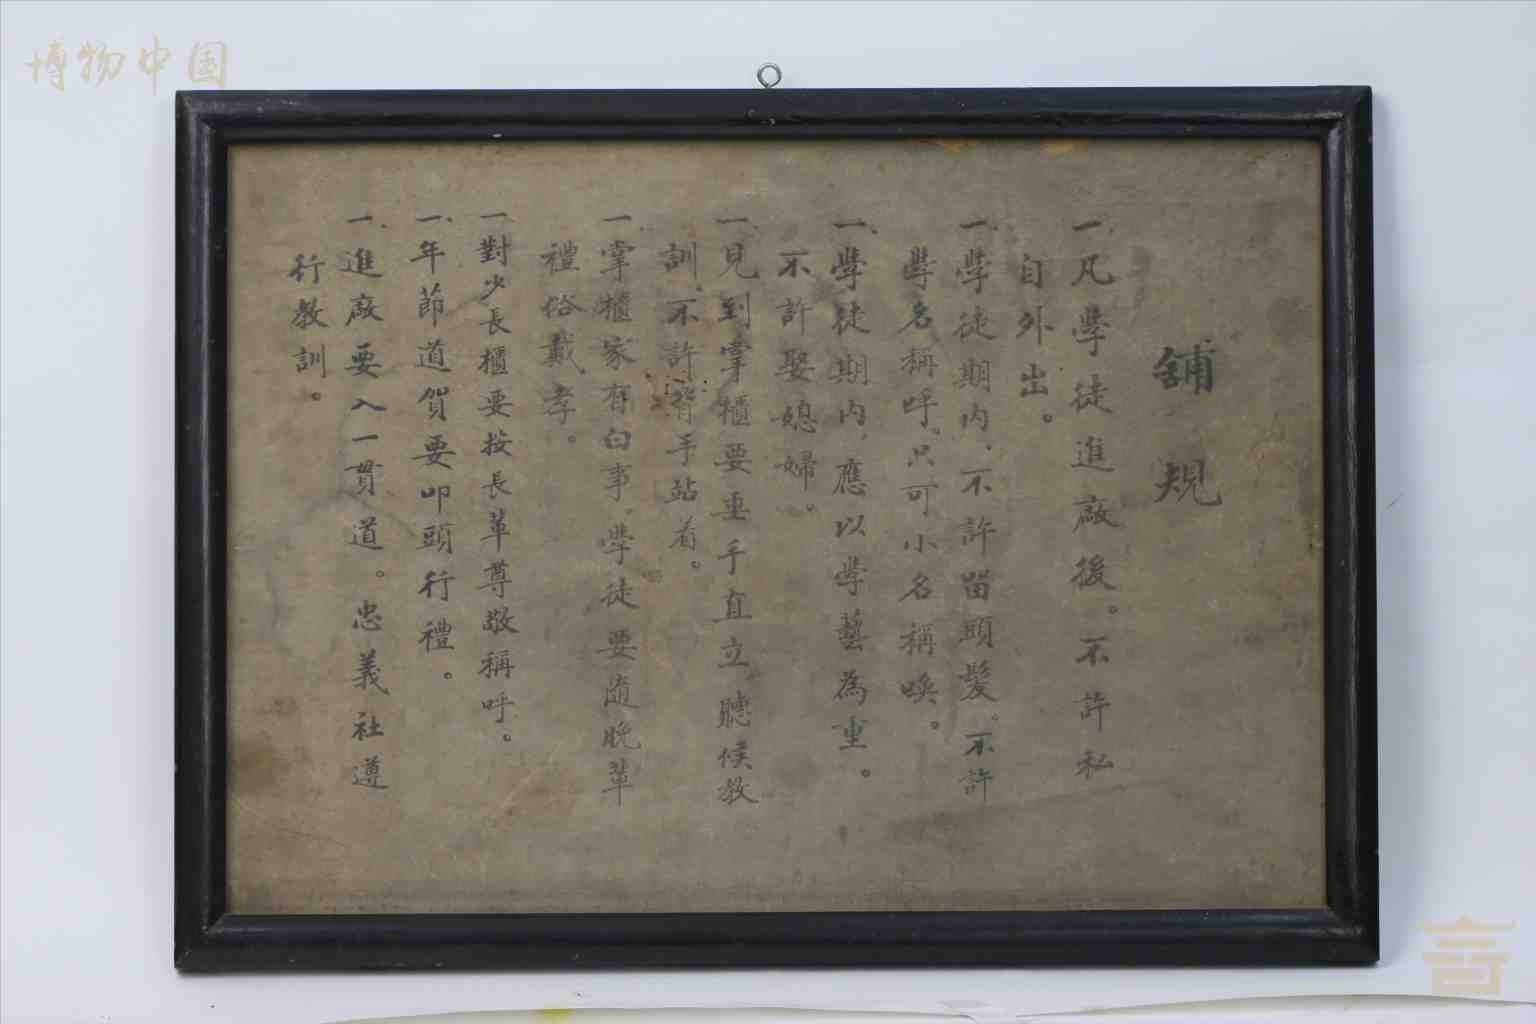 舖規
一、凡學徒進廠後。不許私
自外出。
一、學徒期內、不許畄頭髮。不許
學名稱呼。只可小名稱喚。
一、學徒期內，應以學藝為重。
不許娶媳婦。
一、見到掌櫃要垂手直立聽候教
訓。不許背手站着。
一、掌櫃家有白事。學徒要隨晚輩
禮俗戴孝。
一對少長櫃要按長輩尊敬稱呼。
一、年節道賀要叩頭行禮。
一、進廠要入一貫道。忠義社遵
行教訓。
博物中国